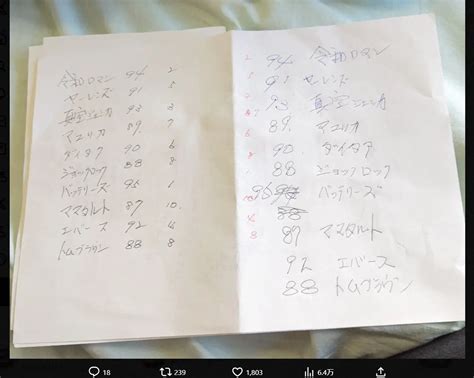 令和ロマン 94 2
ヤーレンズ 91 5
真空ジェシカ 93 3
マユリカ 89 7
ダイタク 90 6
ジョックロック 88 8
バッテリーズ 95 1
ママタルト 87 10
エバース 92 4
トムブラウン 88 8
94 令和ロマン
91 ヤーレンズ
93 真空ジェシカ
89 マユリカ
90 ダイタク
88 ジョックロック
95 バッテリーズ
88
87 ママタルト
92 エバース
88 トムブラウン
18 239 1,803 6.4万